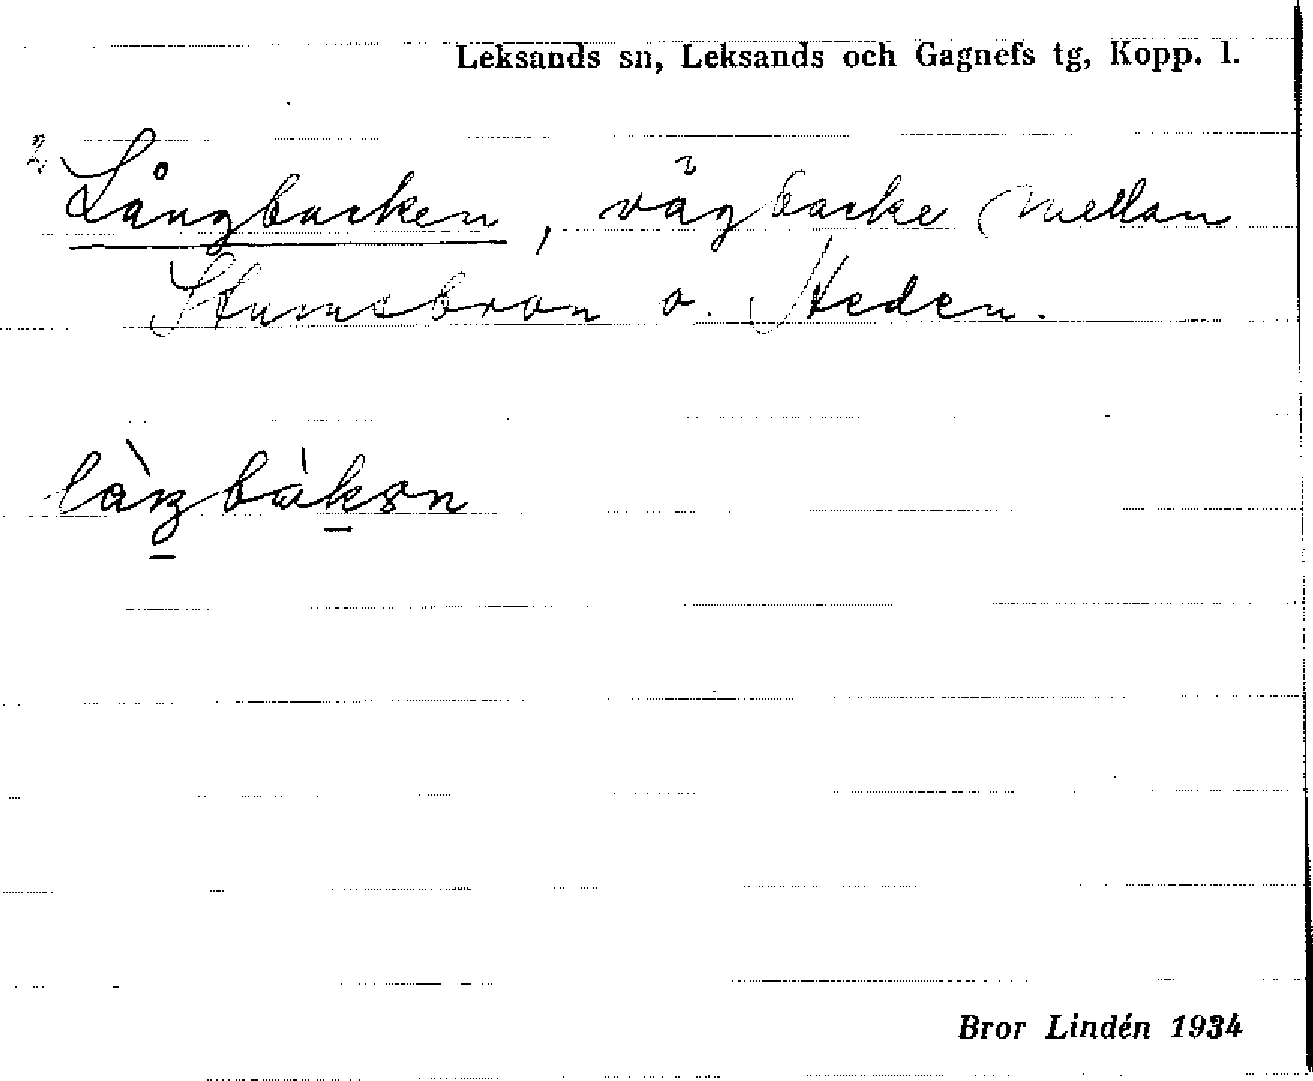 Leksands sn, Leksands och Gagnefs tg, Kopp. l.
2 Långbacken, vägbacke mellan
Stumsbron o. Heden.
Bror Lindén 1934